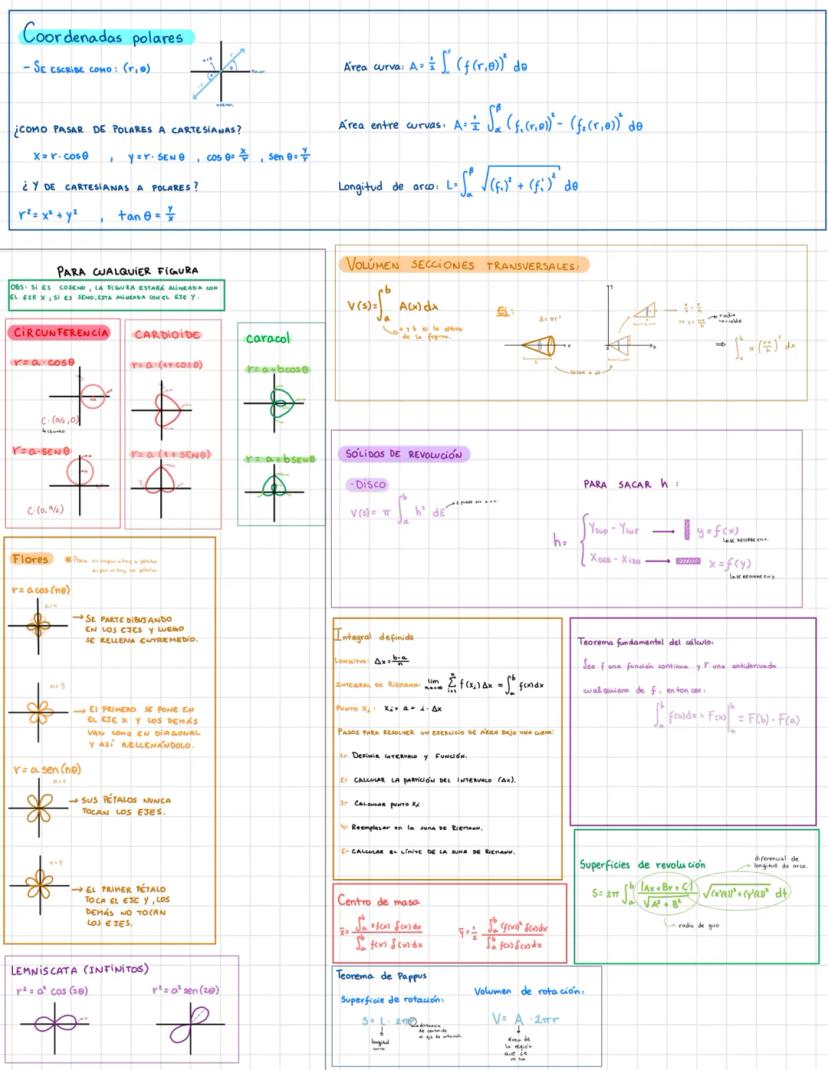 Coordenadas polares
- SE ESCRIBE COMO: (r,θ)
¿COMO PASAR DE POLARES A CARTESIANAS?
x=r·cosθ , y=r·senθ , cosθ=x/r , senθ=y/r
¿Y DE CARTESIANAS A POLARES?
r²=x²+y² , tanθ=y/x
Área curva: A=½∫(f(r,θ))² dθ
Área entre curvas: A=½∫_α^β (f₁(r,θ))² - (f₂(r,θ))² dθ
Longitud de arco: L=∫_α^β √((f₁)²+(f₁')²) dθ
PARA CUALQUIER FIGURA
OBS: SI ES COSENO, LA FIGURA ESTARÁ ALINEADA CON
EL EJE X; SI ES SENO, ESTA ALINEADA CON EL EJE Y.
CIRCUNFERENCIA
r=a·cosθ
C:(a/2,0)
r=a·senθ
C:(0,a/2)
CARDIOIDE
r=a·(1+cosθ)
r=a(1+senθ)
caracol
r=a+bcosθ
r=a+bsenθ
Flores
r=acos(nθ)
→ SE PARTE DIBUJANDO
EN LOS EJES Y LUEGO
SE RELLENA ENTREMEDIO.
n=5
→ El PRIMERO SE PONE EN
EL EJE X Y LOS DEMÁS
VAN COMO EN DIAGONAL
Y ASÍ RELLENÁNDOLO.
r=asen(nθ)
→ SUS PÉTALOS NUNCA
TOCAN LOS EJES.
n=5
→ EL PRIMER PÉTALO
TOCA EL EJE Y, LOS
DEMÁS NO TOCAN
LOS EJES.
LEMNISCATA (INFINITOS)
r²=a²cos(2θ) r²=a²sen(2θ)
VOLÚMEN SECCIONES TRANSVERSALES:
V(s)=∫_a^b A(x)dx
a y b es la altura
de la figura.
EJ:
radio
variable
SÓLIDOS DE REVOLUCIÓN
-DISCO
V(s)=π∫_a^b h² dε
PARA SACAR h:
h= { Ysup - Yinf → y=f(x)
Xder - Xizq → x=f(y)
Integral definida
LONGITUD: Δx=(b-a)/n
INTEGRAL DE RIEMANN: lim n→∞ Σ i=1 n f(xᵢ)Δx = ∫_a^b f(x)dx
PUNTO Xᵢ: xᵢ=a+i·Δx
PASOS PARA RESOLVER UN EJERCICIO DE ÁREA BAJO UNA CURVA:
1- DEFINIR INTERVALO Y FUNCIÓN.
2- CALCULAR LA PARTICIÓN DEL INTERVALO (Δx).
3- CALCULAR PUNTO Xᵢ
4- Reemplazar en la suma de Riemann.
5- CALCULAR EL LÍMITE DE LA SUMA DE RIEMANN.
Teorema fundamental del cálculo:
Sea f una función continua y F una antiderivada
cualquiera de f, entonces:
∫_a^b f(x)dx = F(x)|_a^b = F(b)-F(a)
Superficies de revolución
diferencial de
longitud de arco.
S=2π∫_a^b |Ax+By+C|/√(A²+B²) √((x'(t))²+(y'(t))²) dt
radio de giro
Centro de masa
x̄=∫_a^b xf(x)δ(x)dx / ∫_a^b f(x)δ(x)dx ȳ=½ ∫_a^b (f(x))²δ(x)dx / ∫_a^b f(x)δ(x)dx
Teorema de Pappus
Superficie de rotación: Volumen de rotación:
S=L·2πr V=A·2πr
distancia
de centroide
al eje de rotación
longitud
curva
Área de
la región
que se